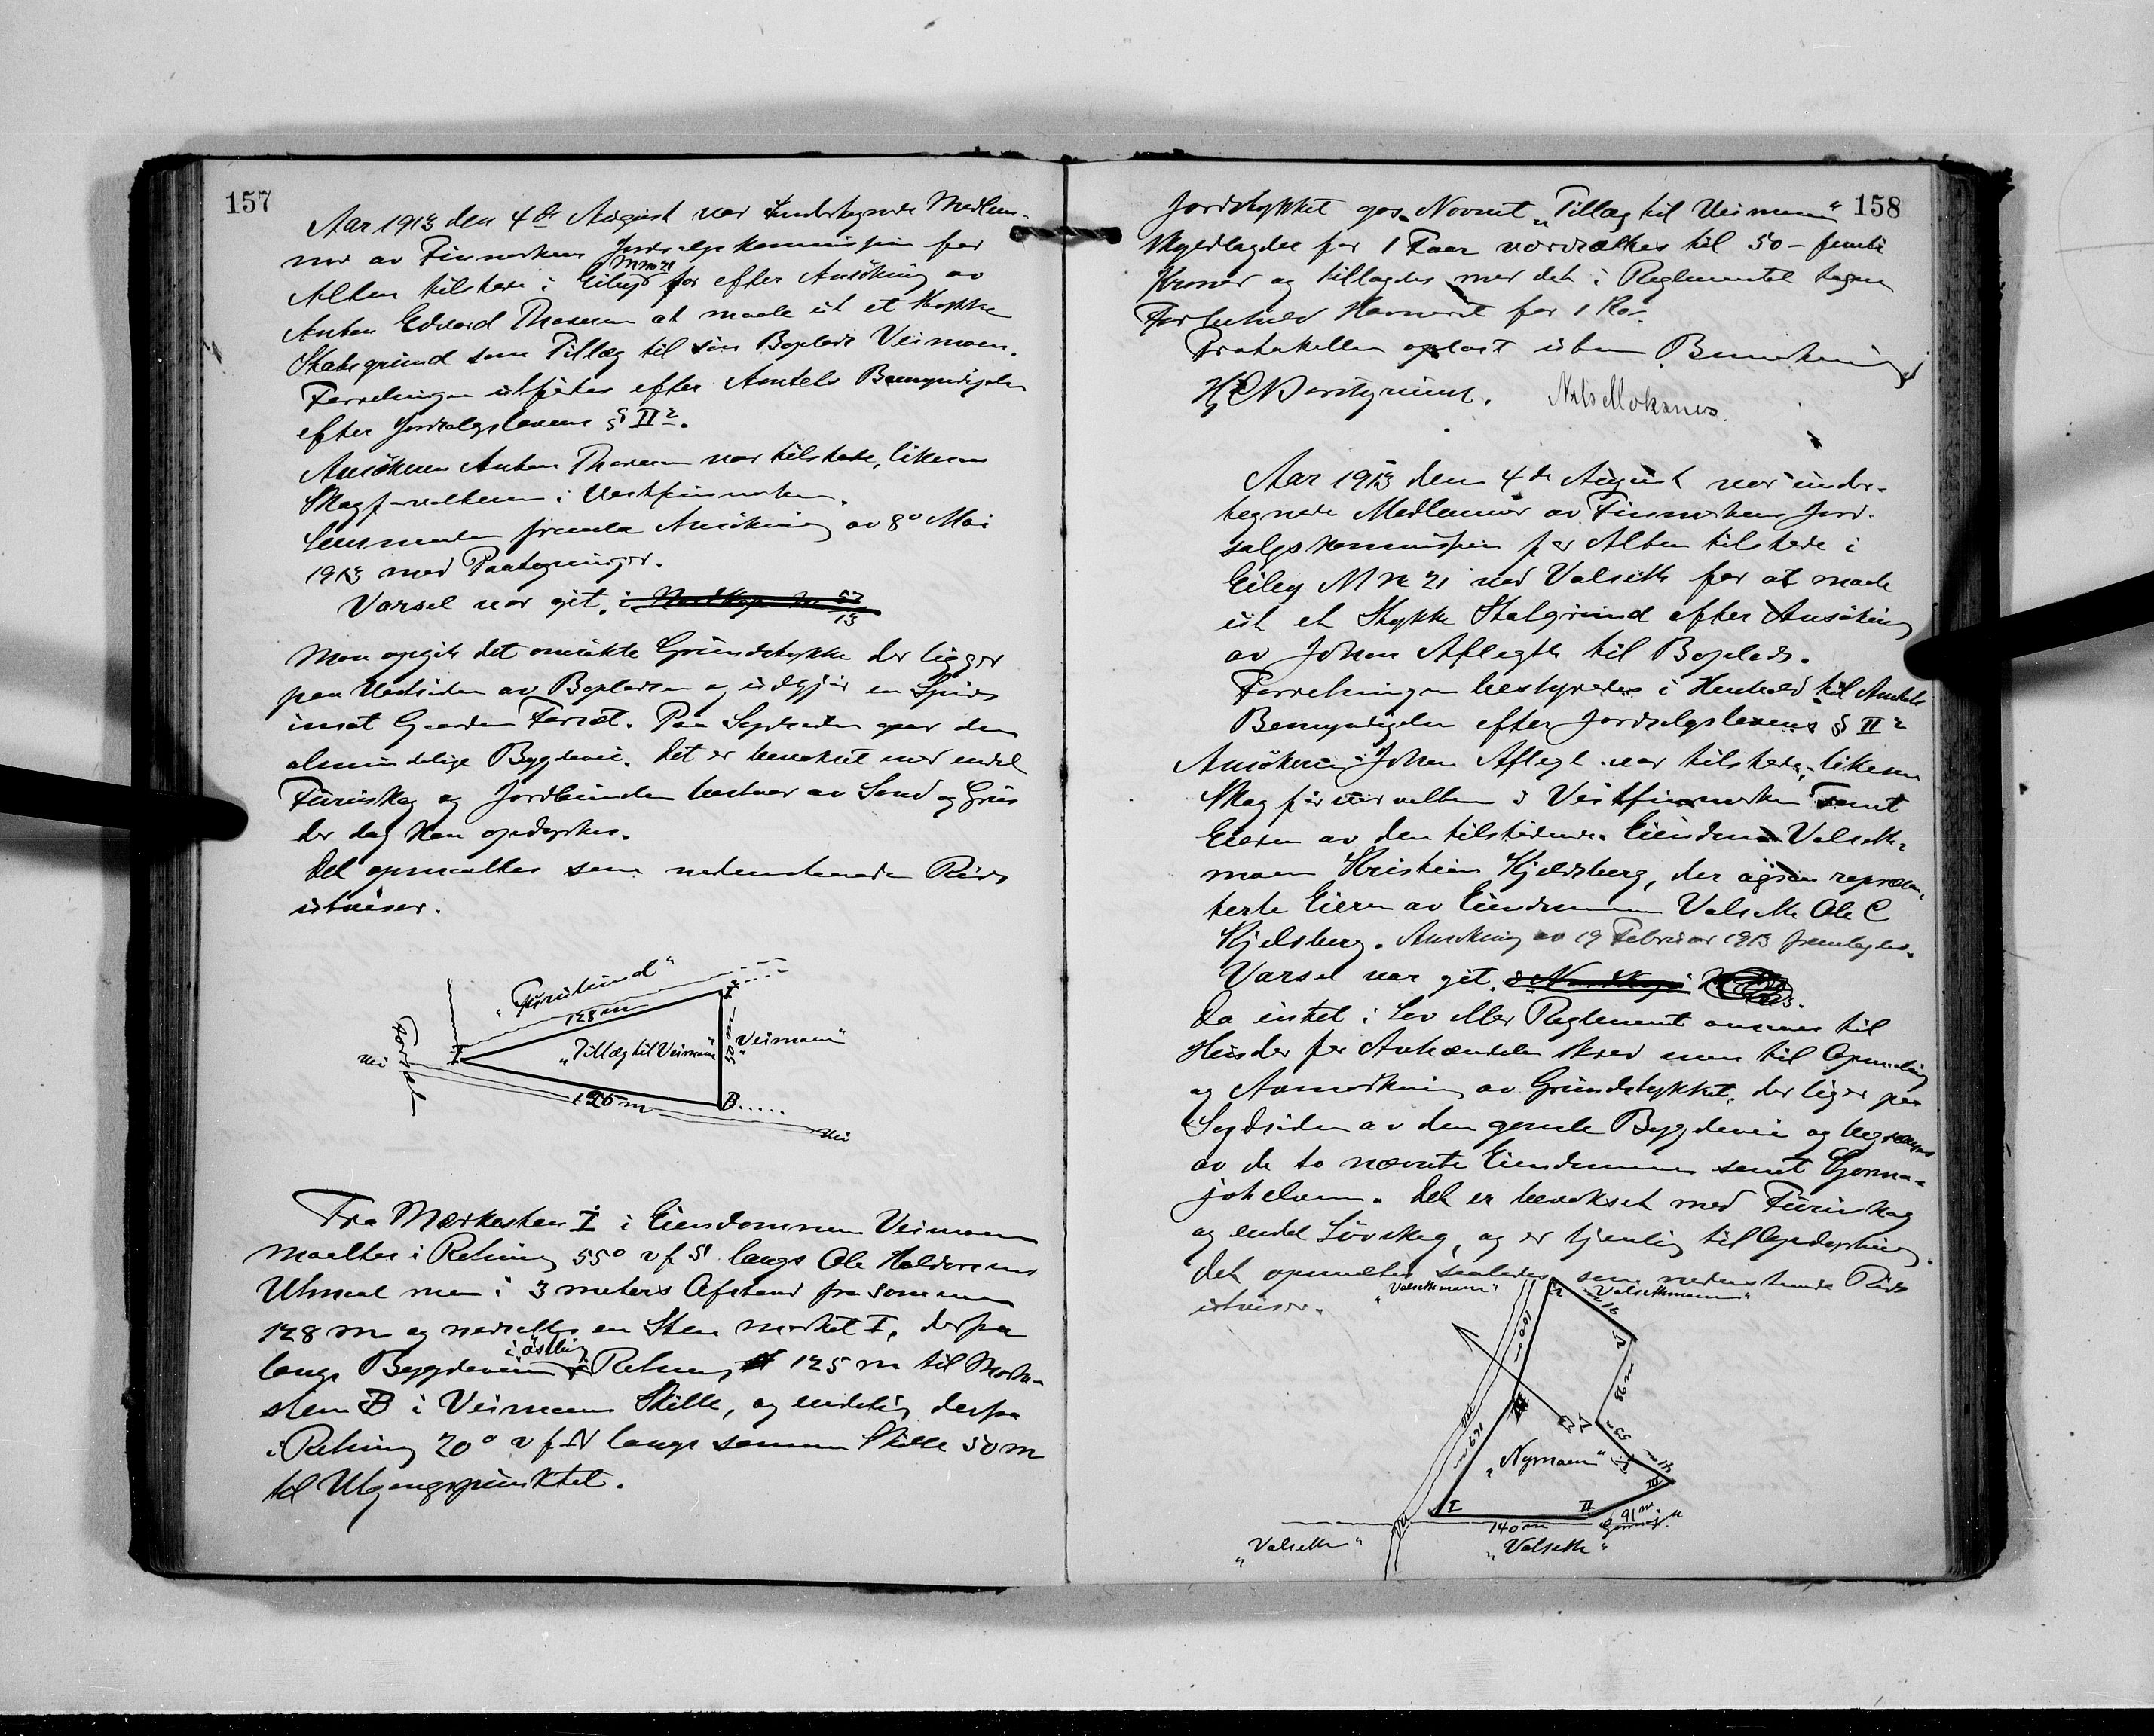 157
Aar 1913 den 4de August var undertegnede Medlem-
mer av Finmarkens Jordsalgskommission for
Alten tilstede i Eiby M no 21 for efter Ansökning av
Anton Edvard Thomesen at maale ut et Stykke
Statsgrund som Tillæg til sin Boplads Veimoen.
Forretningen utförtes efter Amtets Bemyndigelse
efter Jordsalgslovens § II 2.
Ansökeren Anton var tilstede, likesom
Skogforvalteren i Vestfinmarken.
Lensmanden fremla Ansökning av 8de Mai
1913 med Paategninger.
Varsel var git. i Nordkap No 53/13
Man opgik det omsökte Grundstykke der ligger
paa Vestsiden av Bopladsen og utgjör en Spids
imot Gaarden. Paa Sydsiden gaar den
almindelige Bygdevei. Det er bevokset med endel
Furuskog og Jordbunden bestaar av Sand og Grus
der dog kan opdyrkes.
Det opmaaltes som nedenstaaende Rids
utviser.
"Furulund"
128 m
I
"Tillæg til Veimoen"
50 m
"Veimoen"
Vei
I
125 m
B.....
Vei
Fra Merkesten I i Eiendommen Veimoen
maaltes i Retning 55° v f S langs Ole Haldorsens
Utmaal men i 3 meters Afstand fra samme
128 m og nedsattes en Sten merket I, derfra
langs Bygdeveien i östlig Retning 125 m til Merke-
sten B i Veimoens Skille, og endelig derfra
i Retning 20° v f N langs samme Skille 50 m
til Utgangspunktet.
158
Jordstykket gaves Navnet "Tillæg til Veimoen"
skyldlagdes for 1 Öre værdsattes til 50 - femti
Kroner og tillagdes med det i Reglementet tagne
Forbehold Havneret for 1 Ko.
Protokollen oplæst uten Bemerkning
Nils Moksnes.
Aar 1913 den 4de August var under-
tegnede Medlemmer av Finmarkens Jord-
salgskommission for Alten tilstede i
Eiby M N 21 ved Valsette for at maale
ut et Stykke Statsgrund efter Ansökning
av Johan Aflegth til Boplads.
Forretningen bestyredes i Henhold til Amtets
Bemyndigelse efter Jordsalgslovens § II 2
Ansökeren Johan Aflegt var tilstede, likesom
Skogforvalteren i Vestfinmarken samt
Eieren av den tilstötende Eiendom Valsette-
moen Kristian Kjeldsberg, der ogsaa represen-
terte Eieren av Eiendommen Valsette Ole C
Kjelsberg. Ansökning av 19 Februar 1913 fremlagdes.
Varsel var git. i Nordkap
Da intet i Lov eller Reglement ansaaes til
Hinder for Avhændelse skred man til Opmaaling
og Avmerkning av Grundstykket, der ligger paa
Sydsiden av den gamle Bygdevei og begrænses
av de to nævnte Eiendomme samt Gorma-
johelven. Det er bevokset med Furuskog
og endel Lövskog, og er tjenlig til Opdyrkning.
Det opmaaltes saaledes som nedenstaaende Rids
utviser.
"Valsettemoen"
"Valsettemoen"
100 m
86 m
169 m
Vei
"Nymoen"
I
II
III
91 m
140 m
"Valsette"
"Valsette"